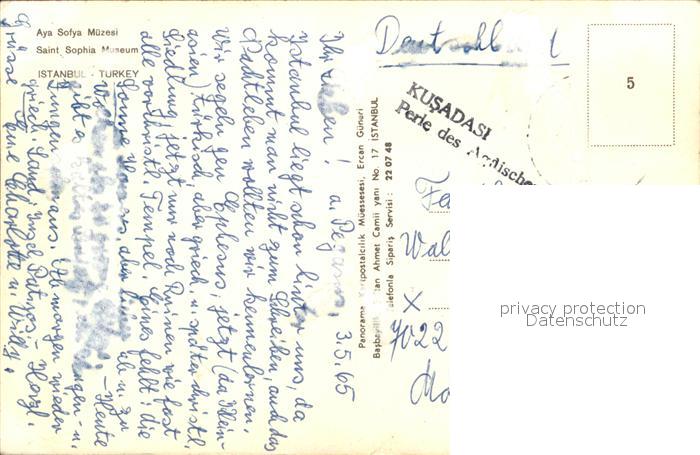 Aya Sofya Müzesi
Saint Sophia Museum
ISTANBUL - TURKEY
Ihr Lieben! a. Pegasus, 3.5.65
Istanbul liegt schon hinter uns, da
kommt man nicht zum Schreiben, auch das
Nachtleben wollten wir kennenlernen.
Wir segeln gen Ephesus, jetzt (da Klein-
asien) türkisch, aber griech. u. später christl.
Siedlung, jetzt nur noch Ruinen wie fast
alle vorchristl. Tempel. Eines fehlt: die
Sonne
ab u. zu
Heute
gibt es
morgen - u.
Jungen aus. Ab morgen wieder
griech. Land, Insel Patmos - Herzl.
Grüsse Eure Charlotte u. Willy.
Panorama Kartpostalcılık Müessesesi, Ercan Günuri
Sultan Ahmet Camii yanı No. 17 ISTANBUL
Telefonla Sipariş Servisi: 22 07 48
Deutschland
KUŞADASI
Perle des Ägäischen
5
Fa
Wal
X
7022
privacy protection
Datenschutz